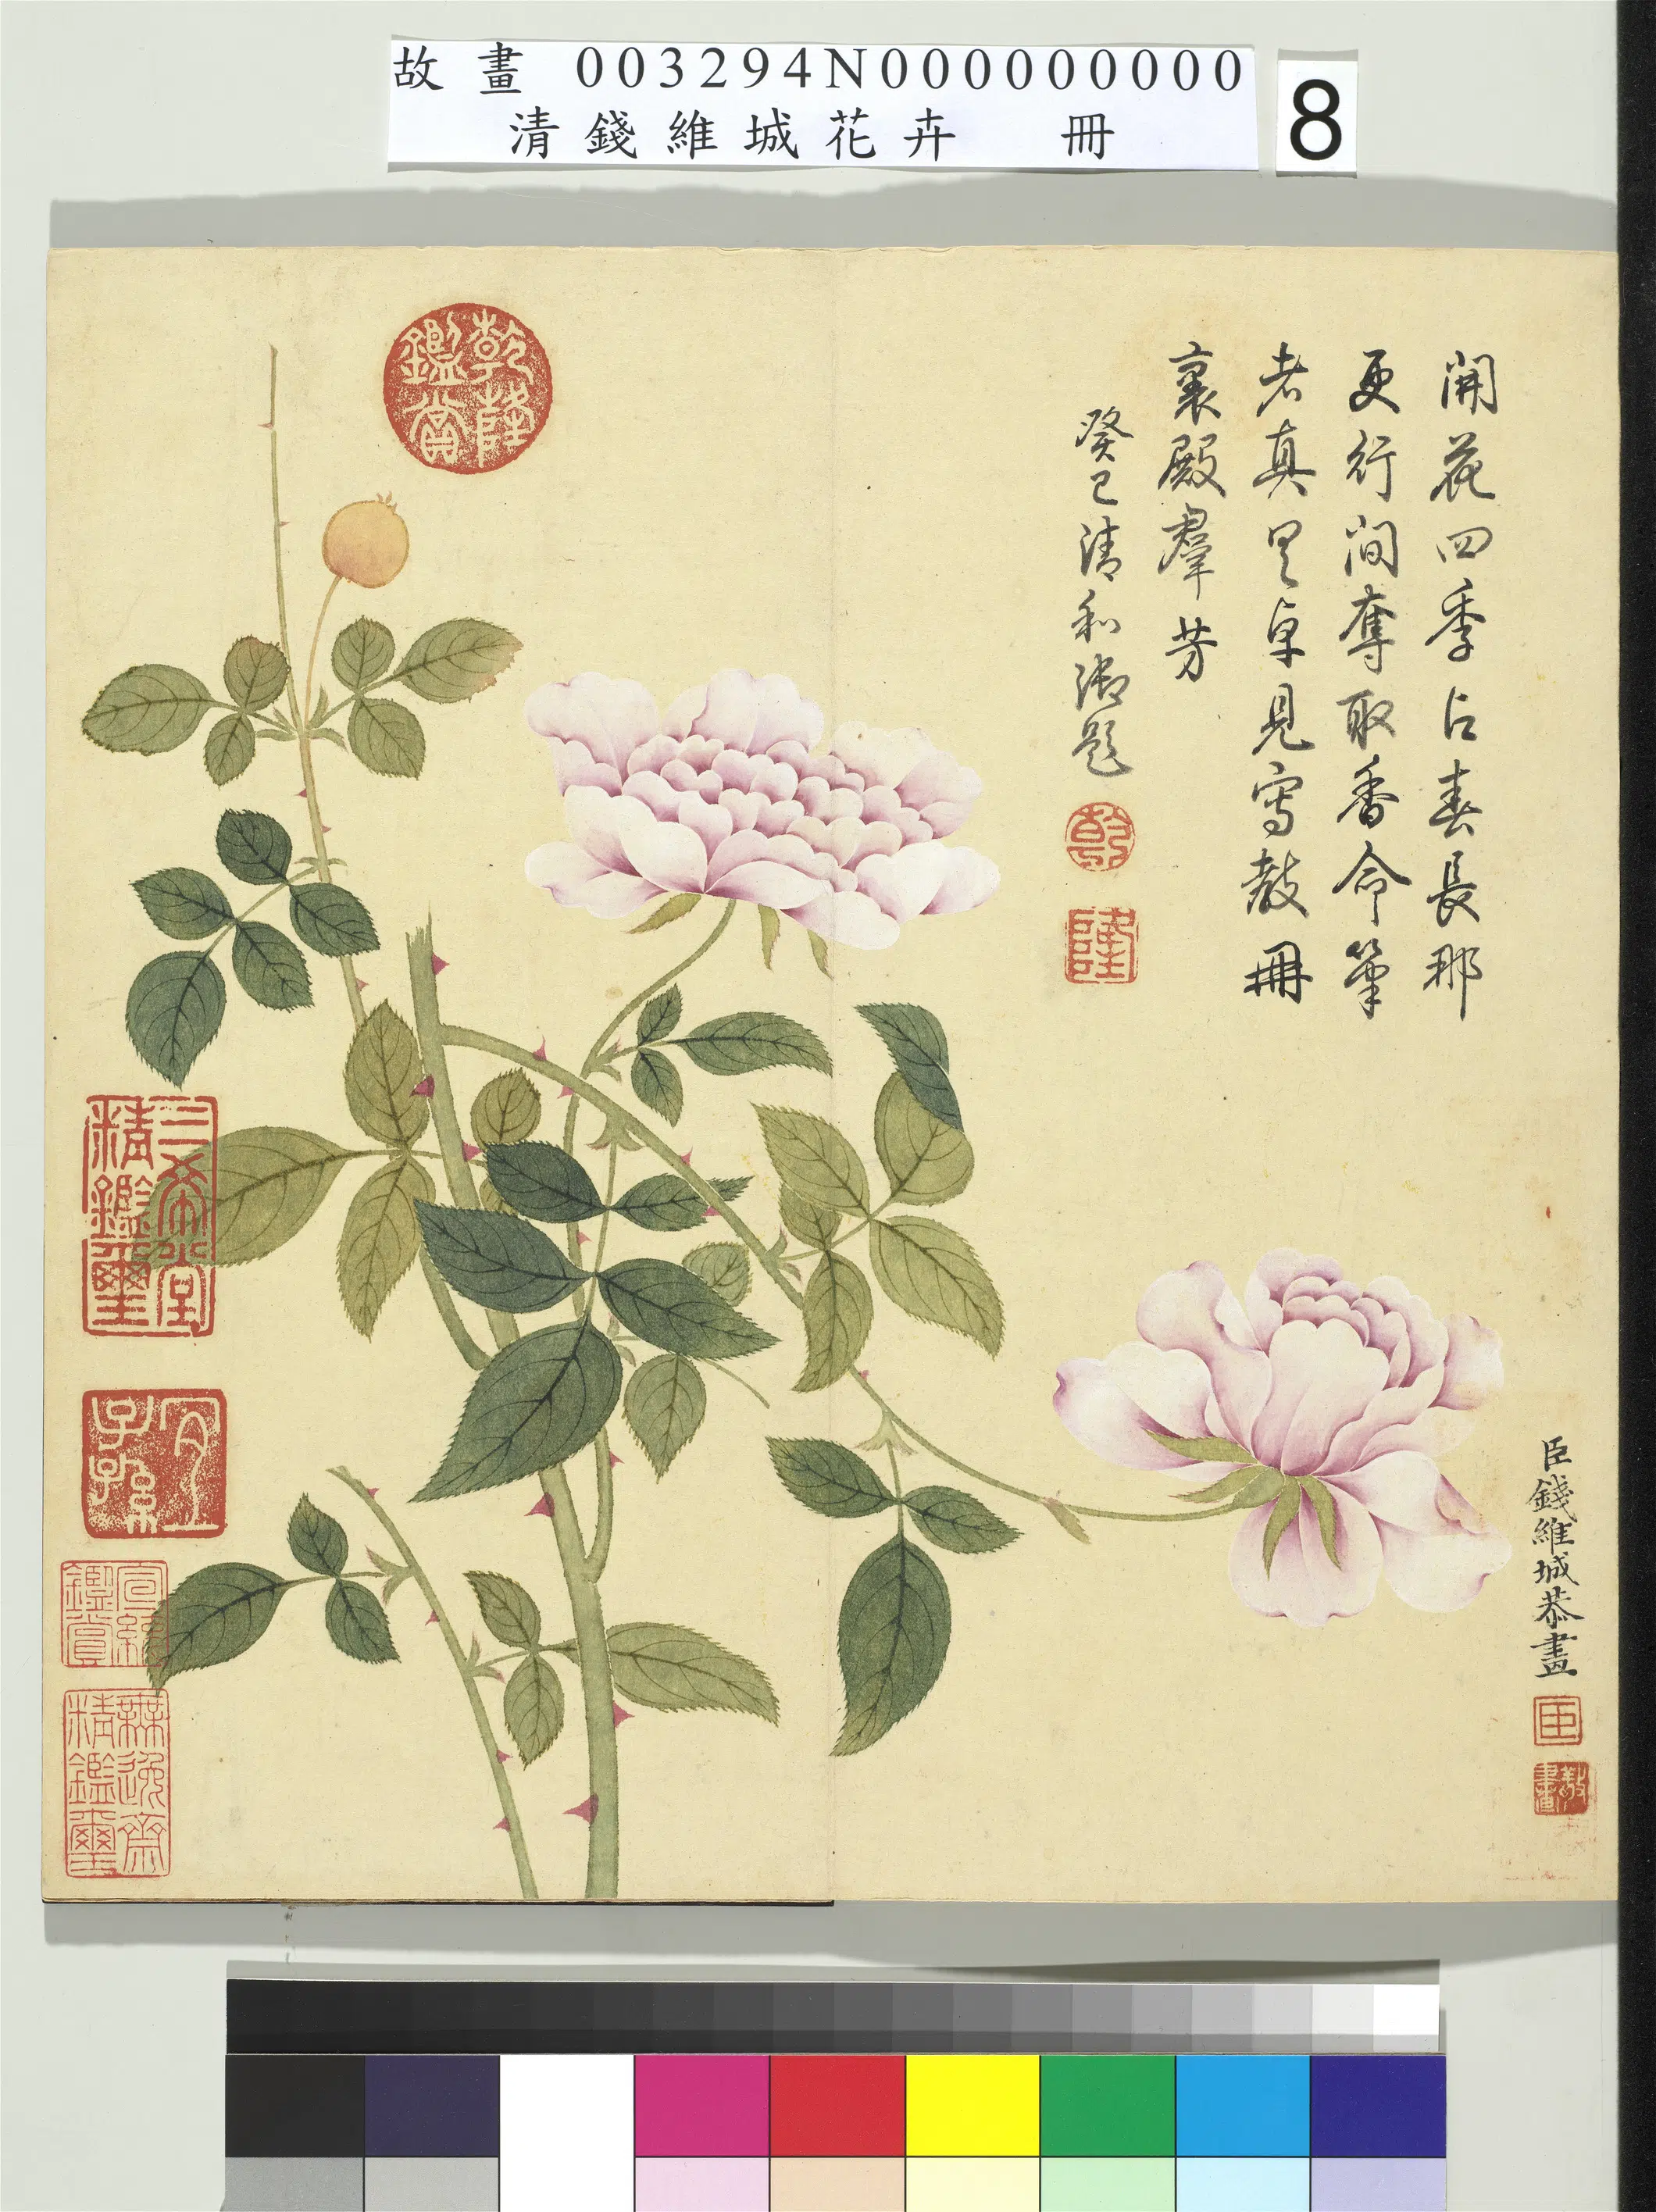 故畫 003294N000000000
清錢維城花卉 冊
8
開花四季占春長那
更行間奪取香命筆
者真是卓見寫教冊
裏殿羣芳
癸巳清和御題
乾
隆
臣錢維城恭畫
臣
敬
畫
乾隆
鑑賞
三希堂
精鑑璽
宜
子孫
宣統
鑑賞
無逸齋
精鑑璽